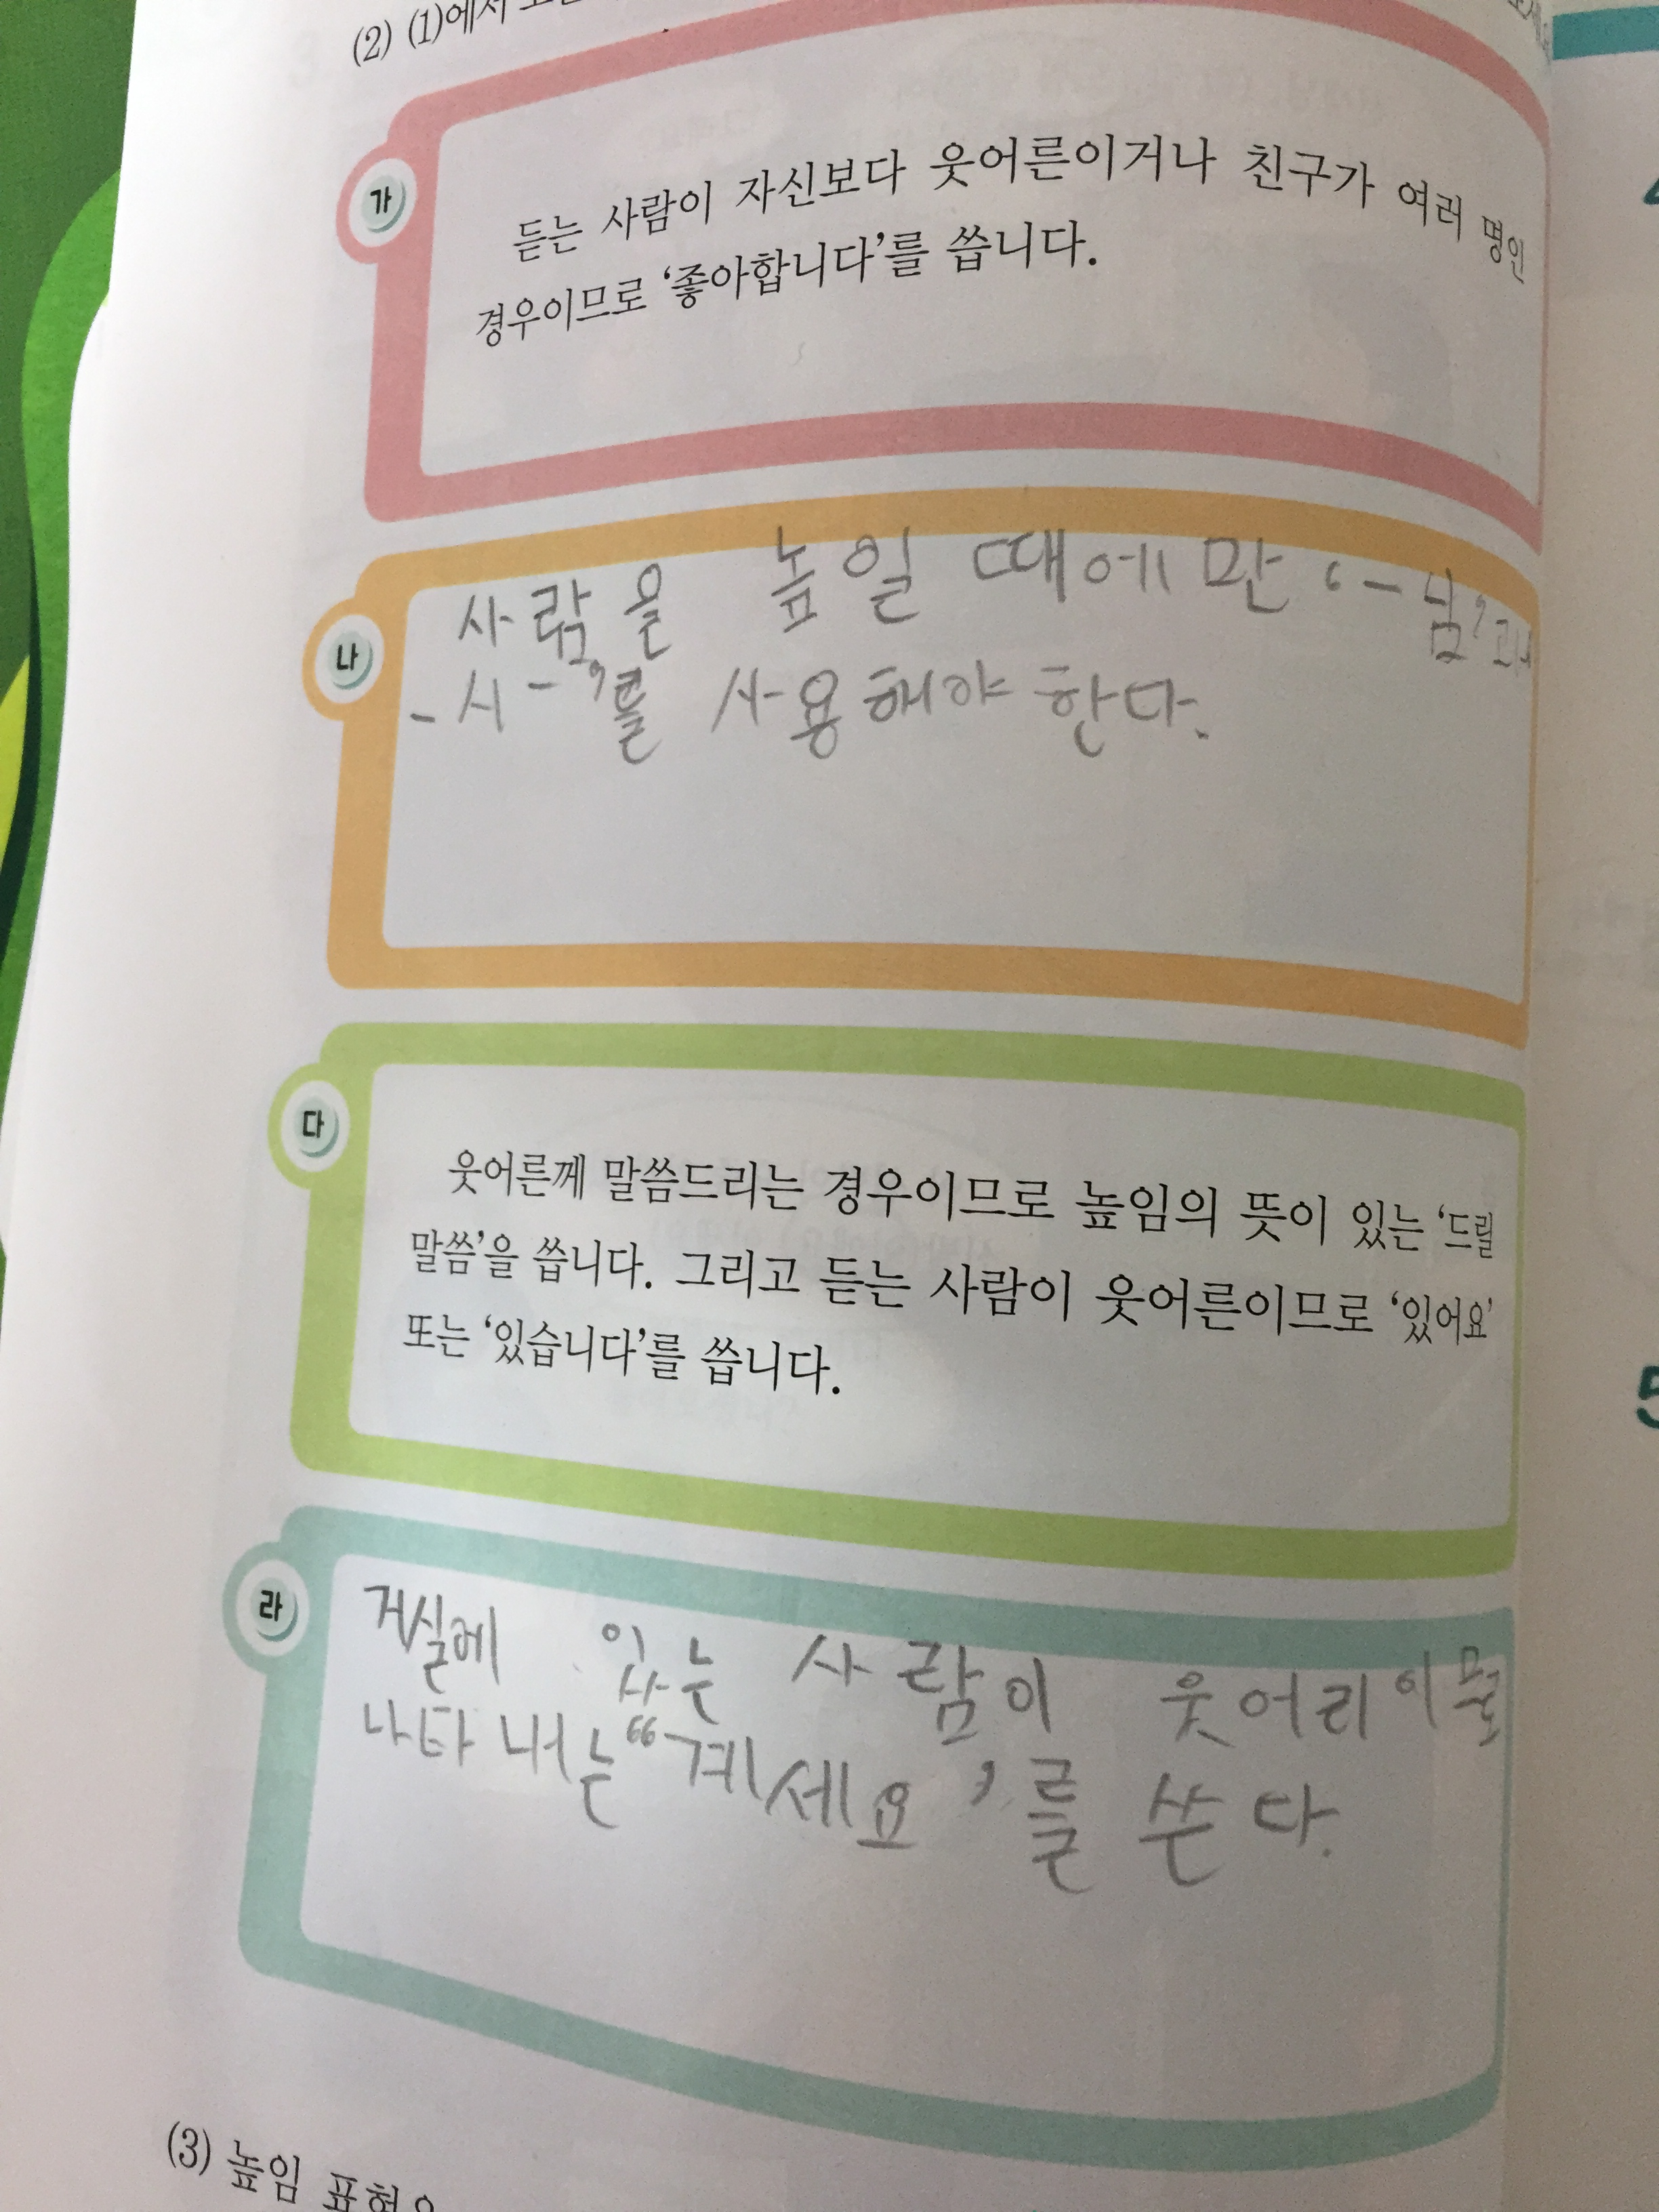 (2) (1)에서
가
듣는 사람이 자신보다 웃어른이거나 친구가 여러 명인
경우이므로 ‘좋아합니다’를 씁니다.
나
사람을 높일 때에만 ‘-님’과
-시-’를 사용해야 한다.
다
웃어른께 말씀드리는 경우이므로 높임의 뜻이 있는 ‘드릴
말씀’을 씁니다. 그리고 듣는 사람이 웃어른이므로 ‘있어요’
또는 ‘있습니다’를 씁니다.
라
거실에 있는 사람이 웃어리이므로
나타내는 “계세요’를 쓴다.
(3) 높임 표현
5